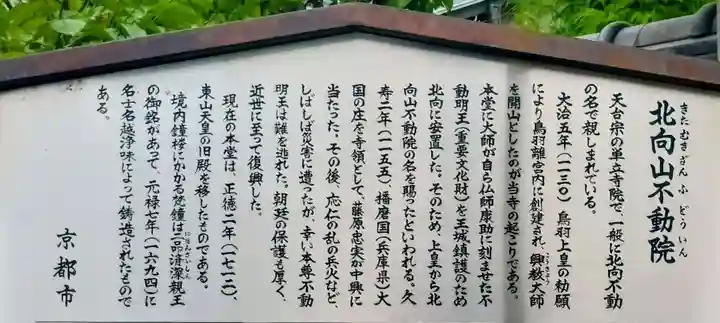 北向山不動院
きたむきざんふどういん
天台宗の単立寺院で、一般に北向不動
の名で親しまれている。
大治五年（一一三〇）鳥羽上皇の勅願
により鳥羽離宮内に創建され、興教大師
こうきょう
を開山としたのが当寺の起こりである。
本堂に大師が自ら仏師康助に刻ませた不
動明王（重要文化財）を王城鎮護のため
北向に安置した。そのため、上皇から北
向山不動院の名を賜ったといわれる。久
寿二年（一一五五）、播磨国（兵庫県）大
国の庄を寺領として、藤原忠実が中興に
当たった。その後、応仁の乱の兵火など、
しばしば災害に遭ったが、幸い本尊不動
明王は難を逃れた。朝廷の保護も厚く、
近世に至って復興した。
現在の本堂は、正徳二年（一七一二）、
東山天皇の旧殿を移したものである。
境内鐘楼にかかる梵鐘は一品済深親王
にほんさいしん
の御銘があって、元禄七年（一六九四）に
名士名越浄味によって鋳造されたもので
ある。
京都市